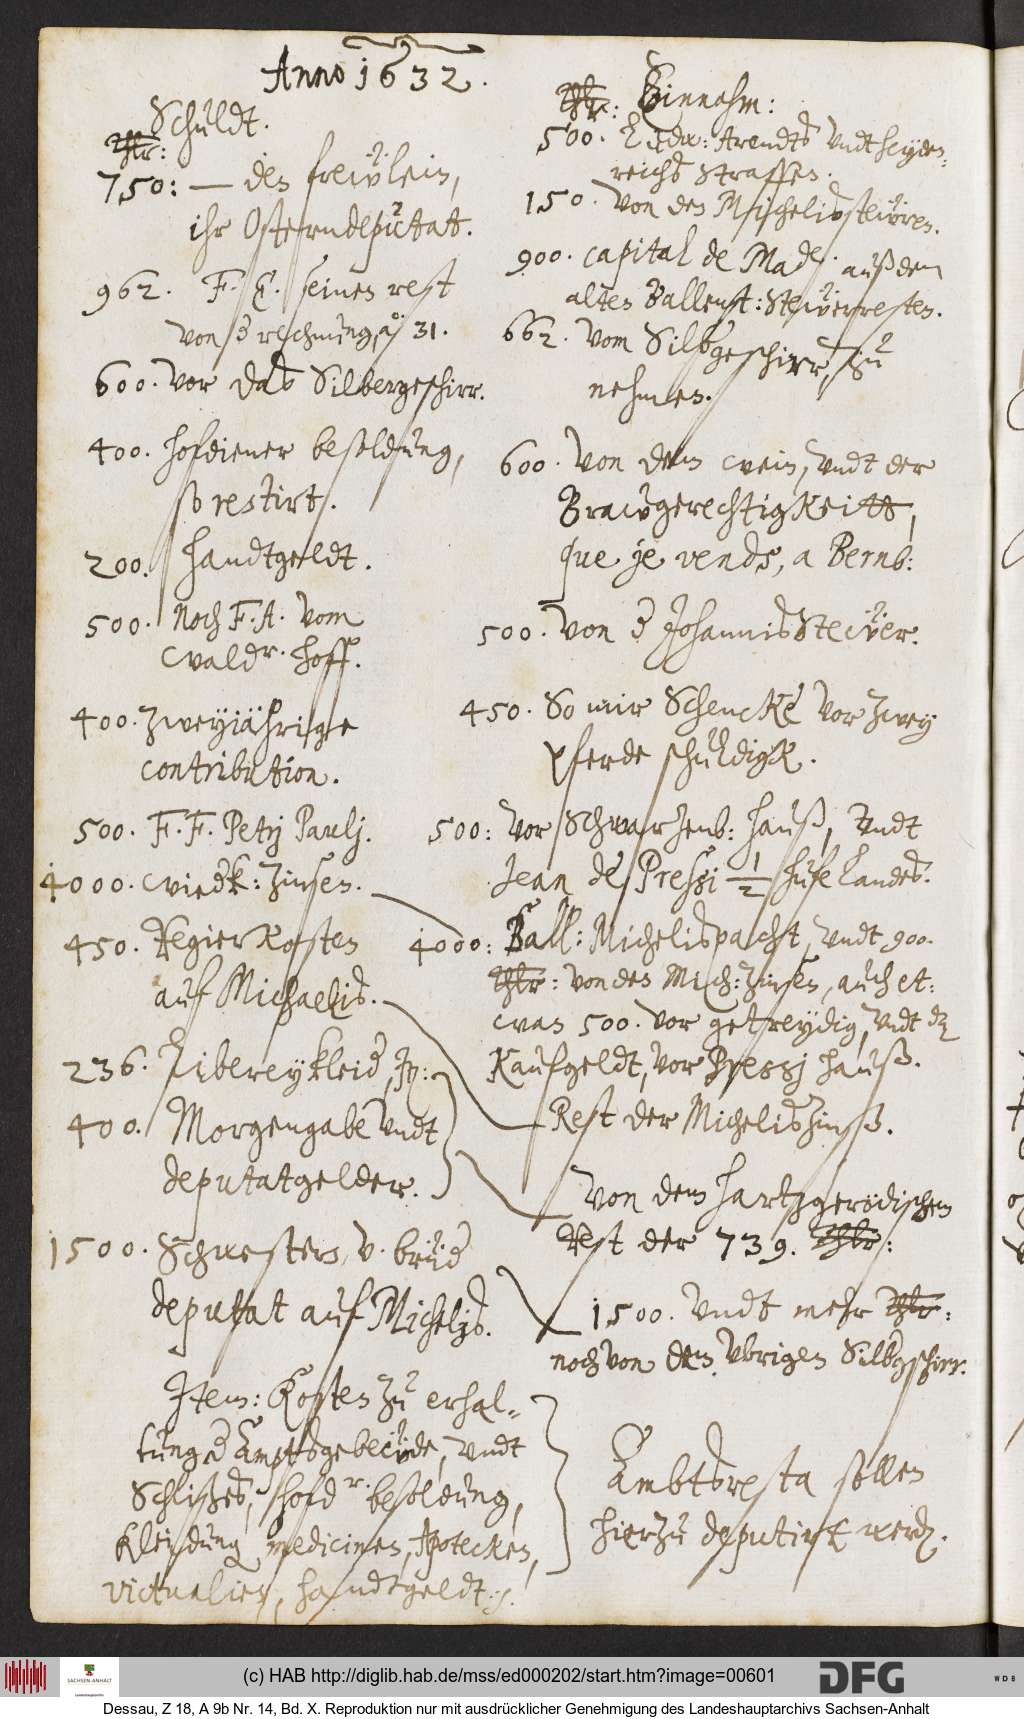 Anno 1632.
Schuldt.
Thlr:
750: — den freẅlein,
ihr Osterndeputat.
962. F. E. seinen rest
von d rechnung, ao 31.
600. vor das Silbergeschirr.
400. hofdiener besoldung,
so restirt.
200. handtgeldt.
500. Noch F. A. vom
Waldr. hoff.
400. zweyiährige
contribution.
500. F. F. Petrj Paulj.
4000. Wiedk: Zinsen.
450. Regierkosten
auf Michaelis.
236. Libereykleid,
400. Morgengabe undt
deputatgelder.
1500. Schwester v. brüd
deputat auf Michelis.
Item: Kosten zu erhal-
tung d Ämptsgebeüde, undt
Schloßes, hofdr. besoldung,
Kleidung medicinen, Apotecken,
victualien, handtgeldt.
Thlr: Einnahm:
500. Arendts undt heyden-
reichs Straffen.
150. von den Michelissteüren.
900. capital de Made. auß dem
alten Ballenst: Steüerresten.
662. vom Silbgeschirr, zu
nehmen.
600. von dem Wein, undt der
Brawgerechtigkeitt,
que je vends, a Bernb:
500. von d Johannis Steüer.
450. So mir Schencke vor zwey
pferde schuldig.
500: vor Schwartzenb: hauß, undt
Jean de Pressi 1/2 hufe Landes.
4000: Ball: Michelispacht, undt 900.
Thlr: von den Mich: Zinsen, auch et:
was 500. vor getreydig, undt dz
Kaufgeldt, vor Pressj hauß.
Rest der Michelis Zinß.
Von dem hartzgerödischen
Rest der 739. Thlr:
1500. undt mehr Thlr:
noch von dem übrigen Silbgschirr.
Ämbtsresta sollen
hierzu deputirt werd.
(c) HAB http://diglib.hab.de/mss/ed000202/start.htm?image=00601
SACHSEN-ANHALT
DFG
WDB
Dessau, Z 18, A 9b Nr. 14, Bd. X. Reproduktion nur mit ausdrücklicher Genehmigung des Landeshauptarchivs Sachsen-Anhalt